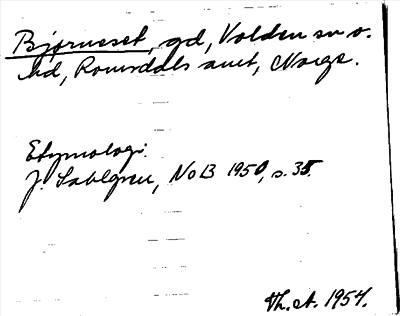 Bjørneset, gd, Volden sn o.
hd, Romsdals amt, Norge.
Etymologi.
J. Sahlgren, NoB 1950, s. 35.
Th. A. 1954.